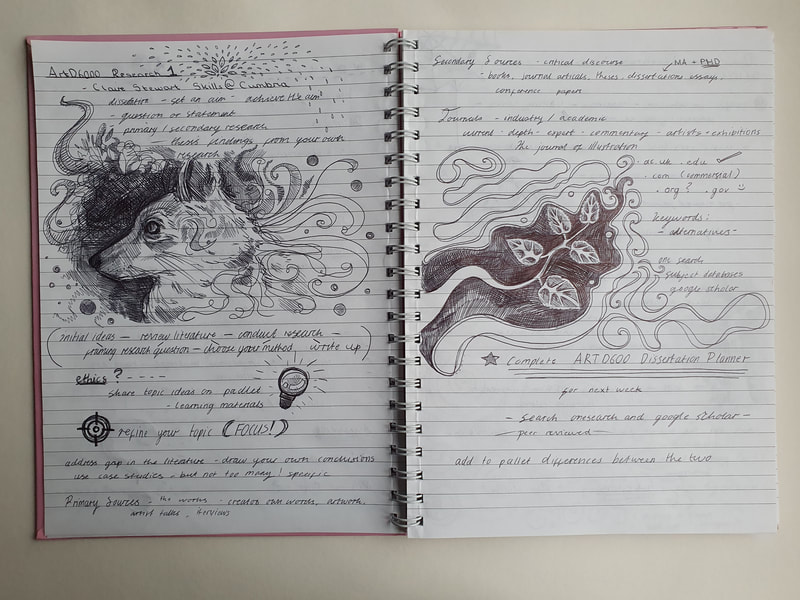 ArtD6000 Research 1
- Clare Stewart Skills@Cumbria
dissertation - set an aim - achieve the aim
- question or statement
- primary/secondary research
- thesis findings from your own
research
initial ideas - review literature - conduct research -
primary research question - choose your method write up
ethics ?
share topic ideas on padlet
- learning materials
refine your topic (FOCUS!)
address gap in the literature - draw your own conclusions
use case studies - but not too many! specific
Primary Sources - the works - creators own words, artwork,
artist talks - iterviews
Secondary Sources - critical discourse
MA + PHD
- books, journal articals, theses, dissertations, essays,
conference papers
Journals - industry / academic
current - depth - expert - commentary - artists - exhibitions
The journal of illustration
.ac.uk .edu ✓
.com (commercial)
.org? .gov
keywords:
- alternatives -
one search
subject databases
google scholar
Complete ARTD600 Dissertation Planner
for next week
- Search onesearch and google scholar -
peer reviewed
add to pallet differences between the two